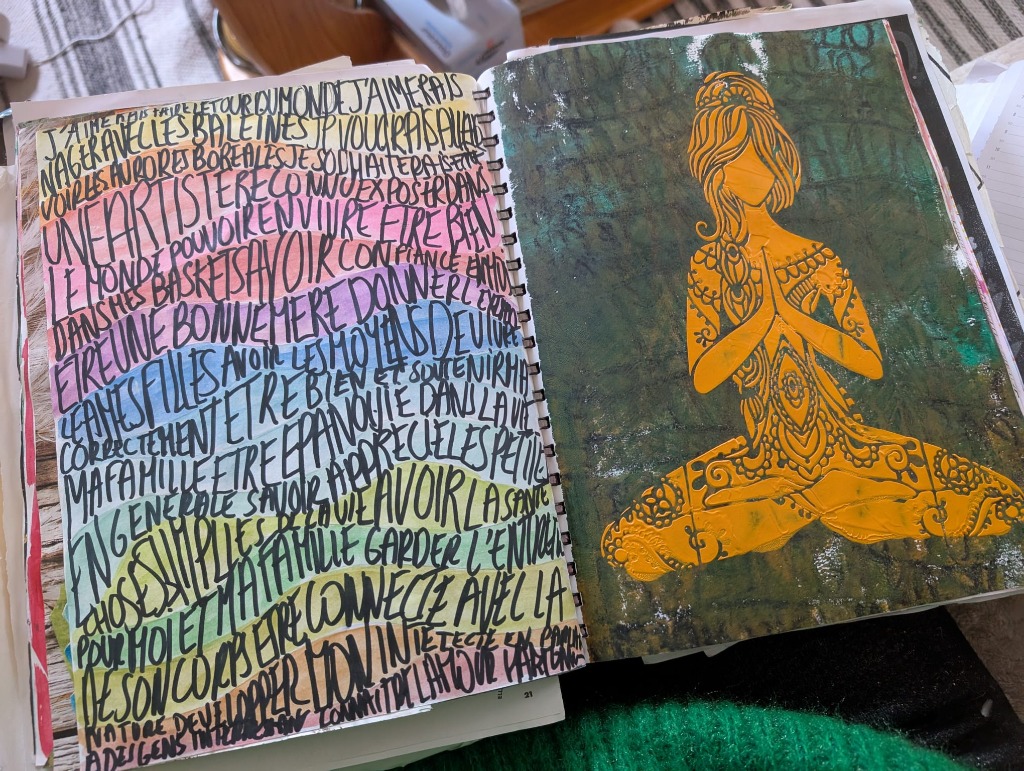 J'AIMERAIS FAIRE LE TOUR DU MONDE J'AIMERAIS
NAGER AVEC LES BALEINES JE VOUDRAIS ALLER
VOIR LES AURORES BOREALES JE SOUHAITERAIS ETRE
UNE ARTISTE RECONNU EXPOSER DANS
LE MONDE POUVOIR EN VIVRE ETRE BIEN
DANS MES BASKET SAVOIR CONFIANCE EN MOI
ETRE UNE BONNE MERE DONNER L'EXEMPLE
A MES FILLES AVOIR LES MOYENS DE VIVRE
CORRECTEMENT ETRE BIEN ET SOUTENIR MA
MA FAMILLE ETRE EPANOUIE DANS LA VIE
EN GENERALE SAVOIR APPRECIE LES PETITE
CHOSES SIMPLES DE LA VIE AVOIR LA SANTE
POUR MOI ET MA FAMILLE GARDER L'ENVIE
DE SON CORPS ETRE CONNECTE AVEC LA
NATURE DEVELOPPER MON INTELECTE EN
A DES GENS CONNAITRE L'AMOUR
21